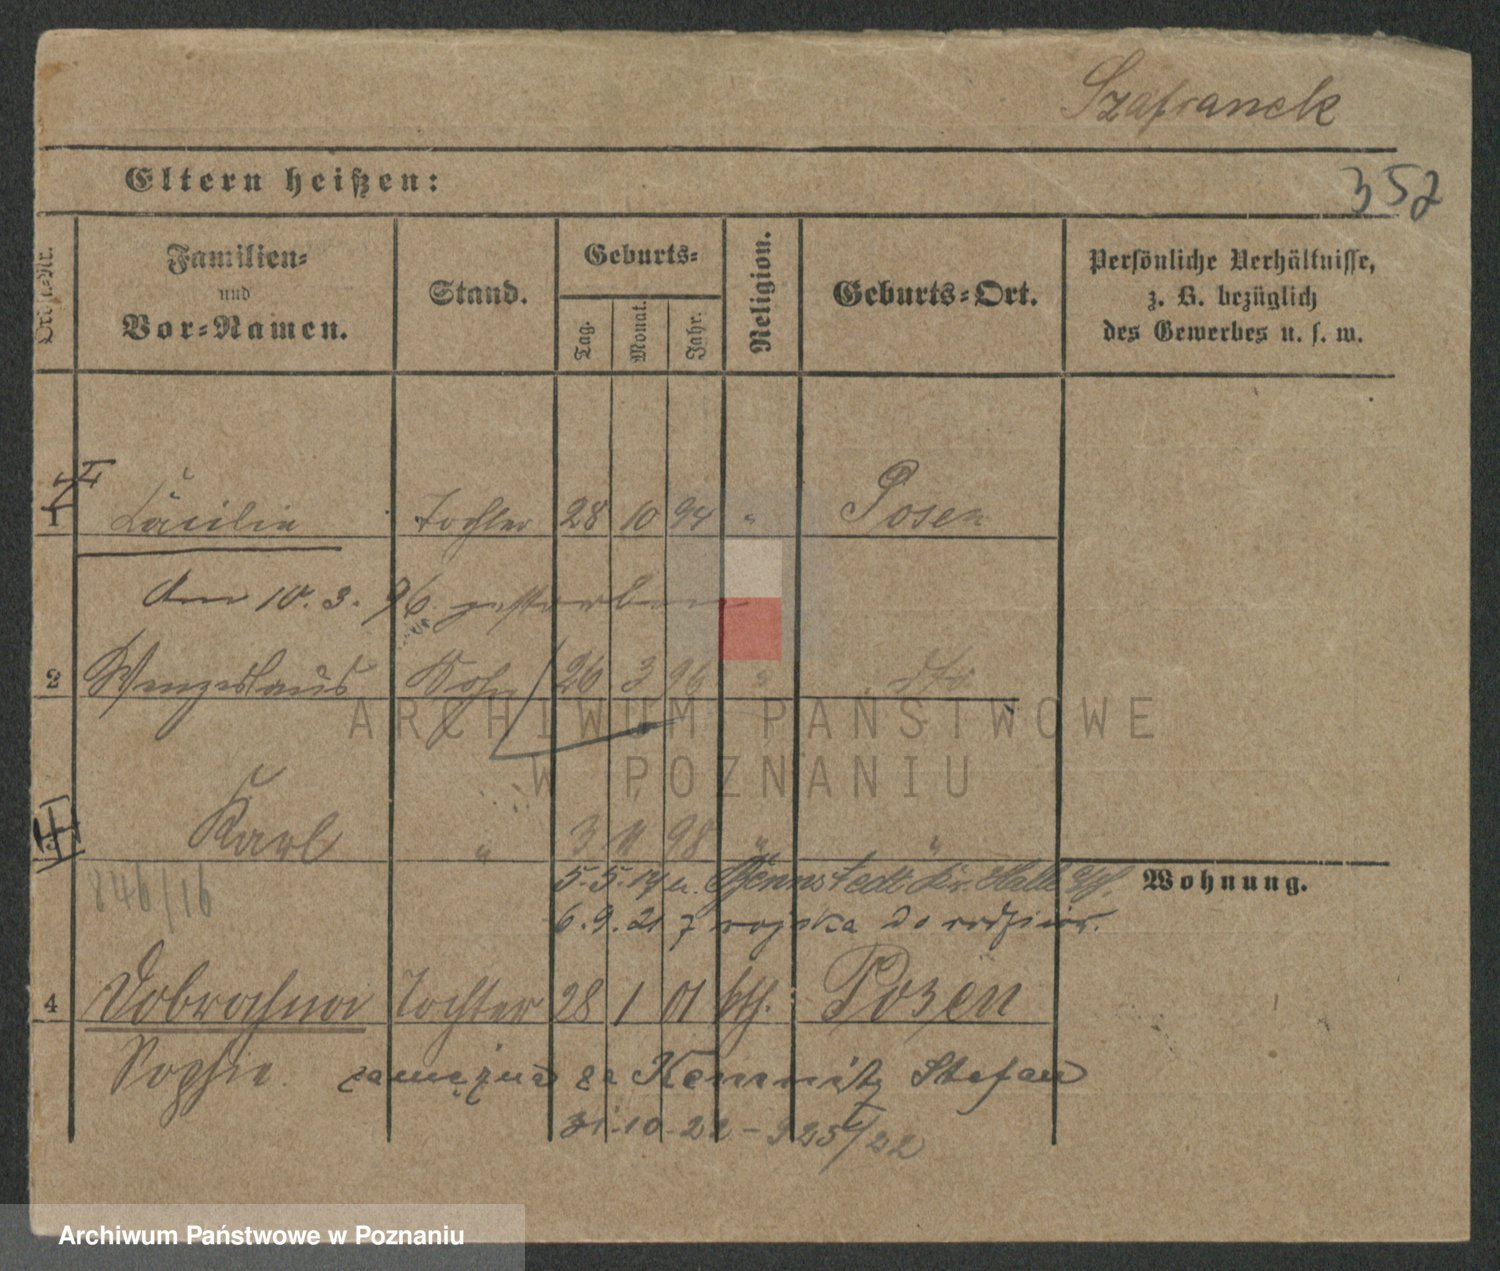 Szafranek
Eltern heißen:
352
Familien-
und
Vor-Namen.
Stand.
Geburts-
Tag.
Monat.
Jahr.
Religion.
Geburts-Ort.
Persönliche Verhältnisse,
z. B. bezüglich
des Gewerbes u. s. w.
1 Cäcilie Tochter 28 10 94 " Posen
den 10. 3. 96. gestorben
2 Wenzeslaus Sohn 26 3 96 " dto
ARCHIWUM PAŃSTWOWE
W POZNANIU
Karl " 3 11 98 " "
846/16
5. 5. 17 u. Bennstedt Kr. Halle
Wohnung.
6. 9. 21 z wojska do rodziców.
4 Dobrochna Tochter 28 1 01 kth. Posen
Sophie. zamężna za Kemnitz Stefan
31.10.22 - 925/22
Archiwum Państwowe w Poznaniu